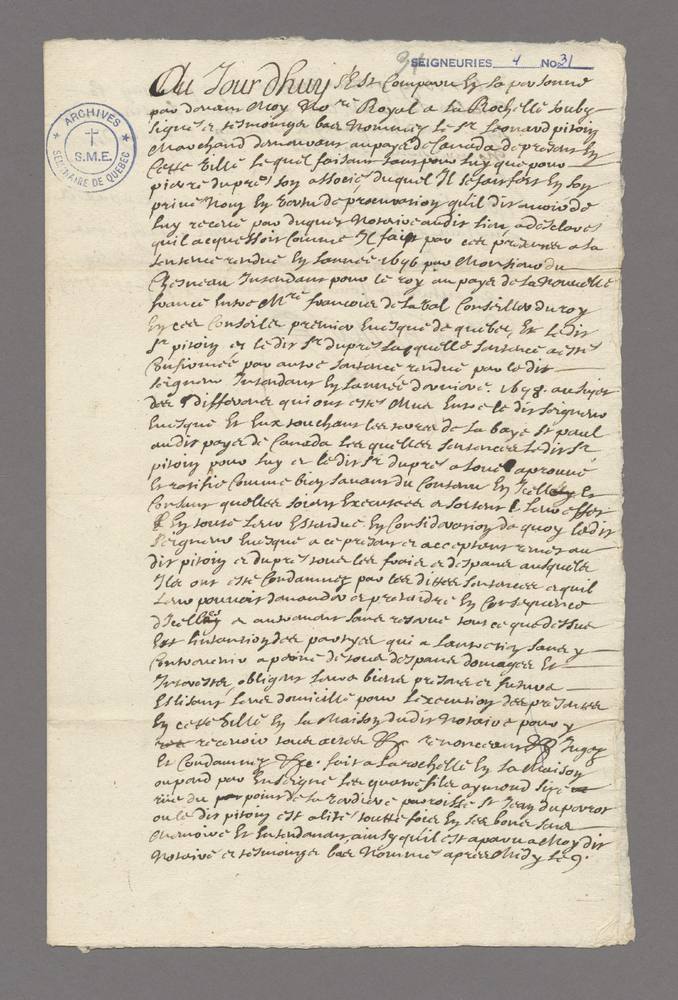 SEIGNEURIES 4 No 31
ARCHIVES
S.M.E.
SEMINAIRE DE QUEBEC
Au Jourdhuy s'Est Comparu En sa personne
par devant Moy No.re Royal a La Rochelle soubz
signé et tesmoings bas Nommez le Sr Leonard pitoin
Marchand demeurant au pays de Canada de present En
Cette Ville Lequel faisant tant pour Luy que pour
pierre dupré son associé duquel Il se fait fort En son
privé Nom En Vertu de procuration qu'il dit avoir de
Luy receue par Notaire audit lieu
qu'il acquessoit Comme Il fait par ces presentes a la
sentence rendue En lannée 1696 par Monsieur du
Chesneau Intendant pour le roy au pays de la Nouvelle
france Entre M.re francois de Laval Conseiller du roy
En ces Conseils premier Evesque de quebec, Et le dit
Sr pitoin et le dit Sr dupré laquelle sentence a esté
Confirmée par autre sentence rendue par le dit
seigneur Intendant En lannée derniere 1698 au sujet
des differens qui ont estés Meus Entre le dit seigneur
Evesque Et Eux touchant les terres de la baye St paul
audit pays de Canada Lesquelles sentences Le dit Sr
pitoin pour Luy et le dit Sr dupré a Loué aprouvé
Et ratifié Comme bien savant du Contenu En Icelles Et
Consent quelles soient Executées et sortent Leur effet
En toute Leur Estendue En Consideration de quoy Le dit
Seigneur Evesque a ce present et acceptant remet au
dit pitoin et dupré tous les fraix et despens ausquels
Ils ont esté Condamnez par les dittes sentences et quil
Leur pouvoit demander et pretendre En Consequence
d'Icelles et autrement sans reserve tout ce que dessus
Est lintention des partyes qui a Lentretien sans y
Contrevenir a peine de tous despens domages Et
Interests, obligent Leurs biens presens et futurs
Eslisent Leur domicille pour Lexecution des presentes
En cette Ville En la Maison du dit Notaire pour y
recevoir tous actes &c renonceant &c Jugez
Et Condamnez &c. fait a La rochelle En la Maison
ou pend par Enseigne Les quatre fils aymond size
rue du parroisse St Jean du perrot
ou le dit pitoin est alité touttefois En ses bons sens
memoire Et Entendement ainsy quil est aparu a Moy dit
Notaire et tesmoings bas Nommés apres Midy le 9.